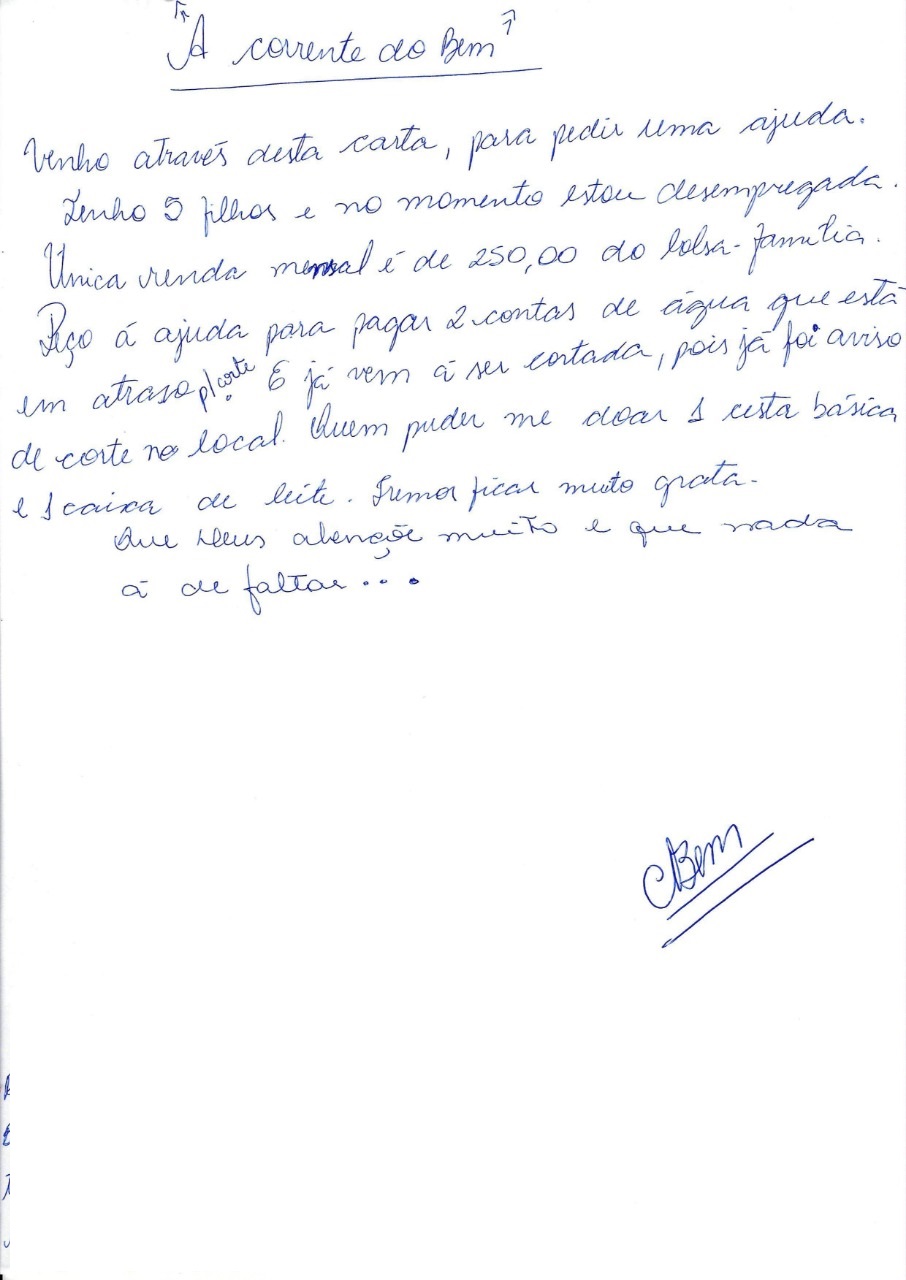 "A corrente do Bem"
Venho através desta carta, para pedir uma ajuda.
Tenho 5 filhos e no momento estou desempregada.
Única renda mensal é de 250,00 do bolsa-família.
Peço á ajuda para pagar 2 contas de água que está
em atraso p/corte. E já vem à ser cortada, pois já foi aviso
de corte no local. Quem puder me doar 1 cesta básica
e 1 caixa de leite. Iremos ficar muito grata.
Que Deus abençõe muito e que nada
á de faltar...
Bem